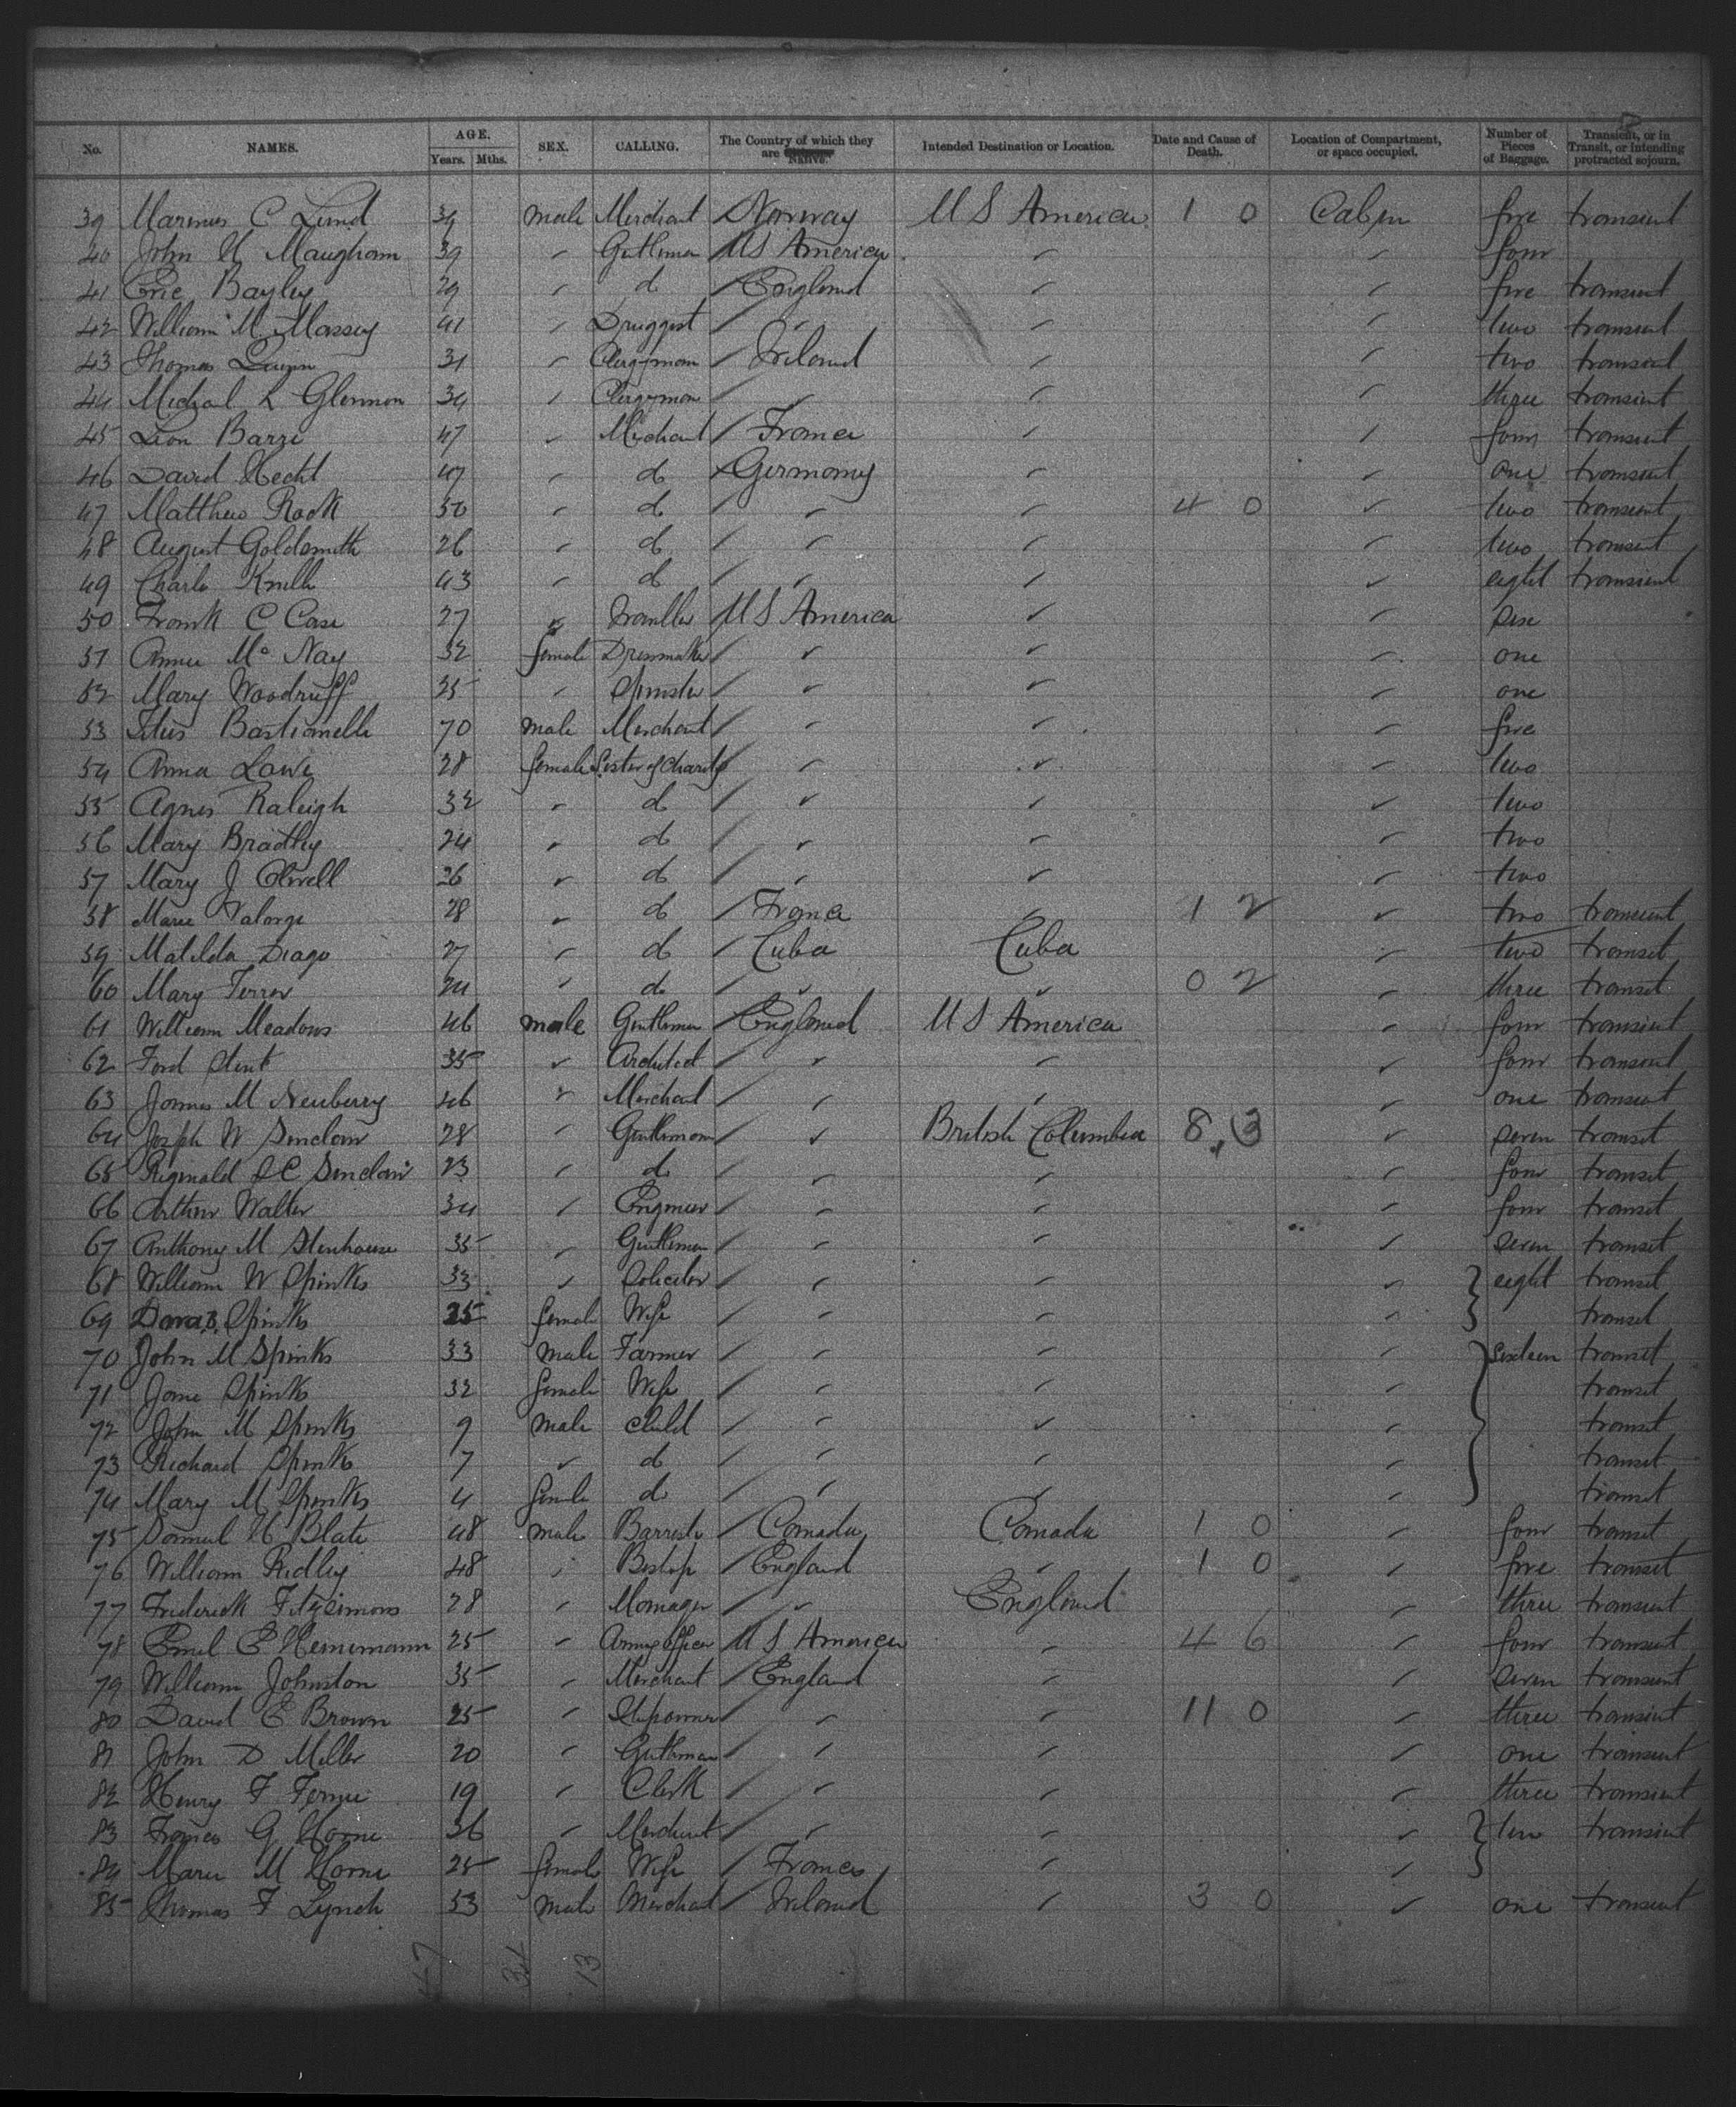 No. NAMES. AGE. Years. Mths. SEX. CALLING. The Country of which they are Native. Intended Destination or Location. Date and Cause of Death. Location of Compartment, or space occupied. Number of Pieces of Baggage. Transient, or in Transit, or intending protracted sojourn.
39 Marinus C Lund 34 male Merchant Norway U S America 1 0 Cabin five transient
40 John H Maugham 39 " Gentleman U S America " " four
41 Eric Bayley 29 " d England " " five transient
42 William M Massey 41 " Druggist " " " two transient
43 Thomas Quinn 31 " Clergyman Ireland " " two transient
44 Michael L Glennon 34 " Clergyman " " " three transient
45 Leon Barre 47 " Merchant France " " four transient
46 David Hecht 47 " d Germany " " one transient
47 Matthew Rook 50 " d " " 4 0 " two transient
48 August Goldsmith 26 " d " " " two transient
49 Charles 43 " d " " " eight transient
50 Frank C Case 27 " Traveller U S America " " six
51 Annie Mc Nay 32 female Dressmaker " " " one
52 Mary Woodruff 35 " Spinster " " " one
53 Titus Bastianelli 70 male Merchant " " " five
54 Anna Lowe 28 female Sister of Charity " " " two
55 Agnes Raleigh 32 " d " " " two
56 Mary Bradley 24 " d " " " two
57 Mary J Olwell 26 " d " " " two
58 Marie 28 " d France " 1 2 " two transient
59 Matilda Diago 27 " d Cuba Cuba " two transit
60 Mary Ferrer 24 " d " " 0 2 " three transit
61 William Meadows 46 male Gentleman England U S America " four transient
62 Ford Stent 35 " Architect " " " four transient
63 James M Newberry 46 " Merchant " " " one transient
64 Joseph W Sinclair 28 " Gentleman " British Columbia 8 3 " seven transit
65 Reginald S C Sinclair 23 " d " " " four transit
66 Arthur Walter 34 " Engineer " " " four transit
67 Anthony M Stenhouse 35 " Gentleman " " " seven transit
68 William W Spinks 33 " Solicitor " " " eight transit
69 Dora B. Spinks 25 female Wife " " " transit
70 John M Spinks 33 male Farmer " " " sixteen transit
71 Jane Spinks 32 female Wife " " " transit
72 John M Spinks 9 male child " " " transit
73 Richard Spinks 7 " d " " " transit
74 Mary M Spinks 4 female d " " " transit
75 Samuel H Blake 48 male Barrister Canada Canada 1 0 " four transit
76 William Ridley 48 " Bishop England " 1 0 " five transit
77 Frederick Fitzsimons 28 " Manager " England " three transient
78 Emil E Heinemann 25 " Army officer U S America " 4 6 " four transient
79 William Johnston 35 " Merchant England " " seven transient
80 David E Brown 25 " " " 11 0 " three transient
81 John D Miller 20 " Gentleman " " " one transient
82 Henry F Fernie 19 " Clerk " " " three transient
83 Francis G Horne 36 " Merchant " " " transient
84 Marie M Horne 25 female Wife France " "
85 Thomas F Lynch 53 male Merchant Ireland " 3 0 " one transient
13